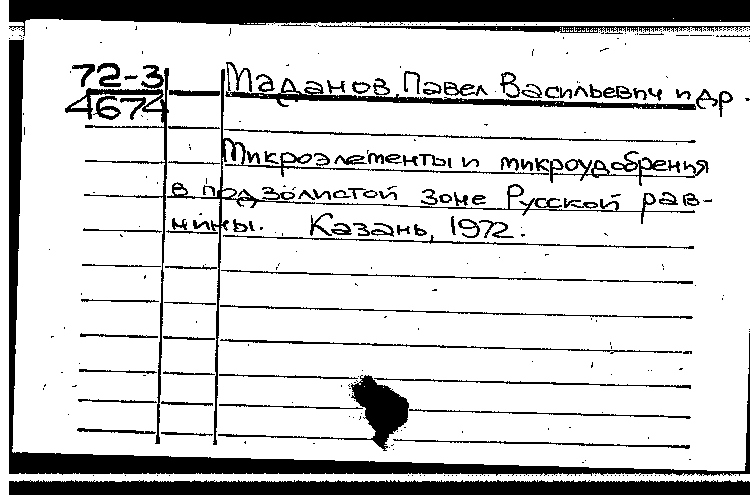 72-3 Маданов, Павел Васильевич и др.
4674
Микроэлементы и микроудобрения
в подзолистой зоне Русской рав-
нины. Казань, 1972.